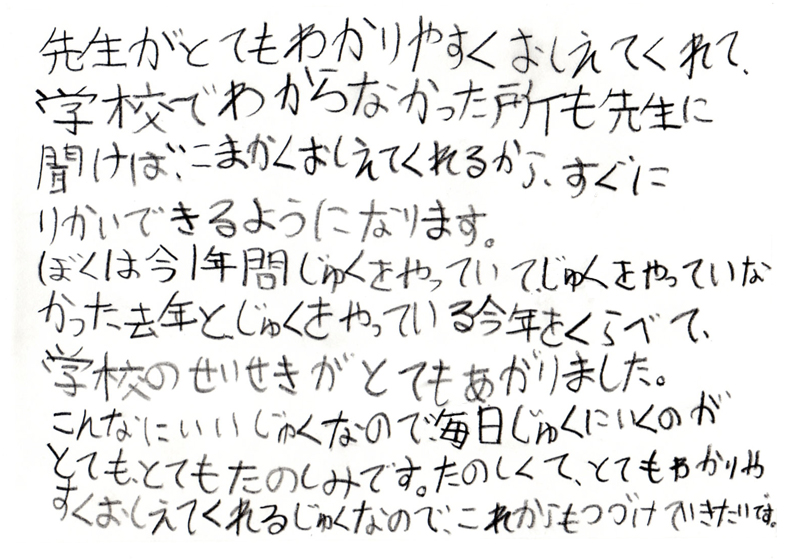 先生がとてもわかりやすくおしえてくれて、
学校でわからなかった所も先生に
聞けば、こまかくおしえてくれるから、すぐに
りかいできるようになります。
ぼくは今1年間じゅくをやっていて、じゅくをやっていな
かった去年と、じゅくをやっている今年をくらべて、
学校のせいせきがとてもあがりました。
こんなにいいじゅくなので、毎日じゅくにいくのが
とても、とてもたのしみです。たのしくて、とてもわかりや
すくおしえてくれるじゅくなので、これからもつづけていきたいです。